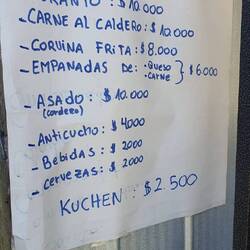 $ 10.000
- CARNE AL CALDERO: $ 10.000
- CORVINA FRITA: $ 8.000
- EMPANADAS DE: • QUESO • CARNE } $ 6.000
- ASADO: $ 10.000
(CORDERO)
- ANTICUCHO: $ 4000
- BEBIDAS: $ 2000
- CERVEZAS: $ 2000
KUCHEN: $ 2.500